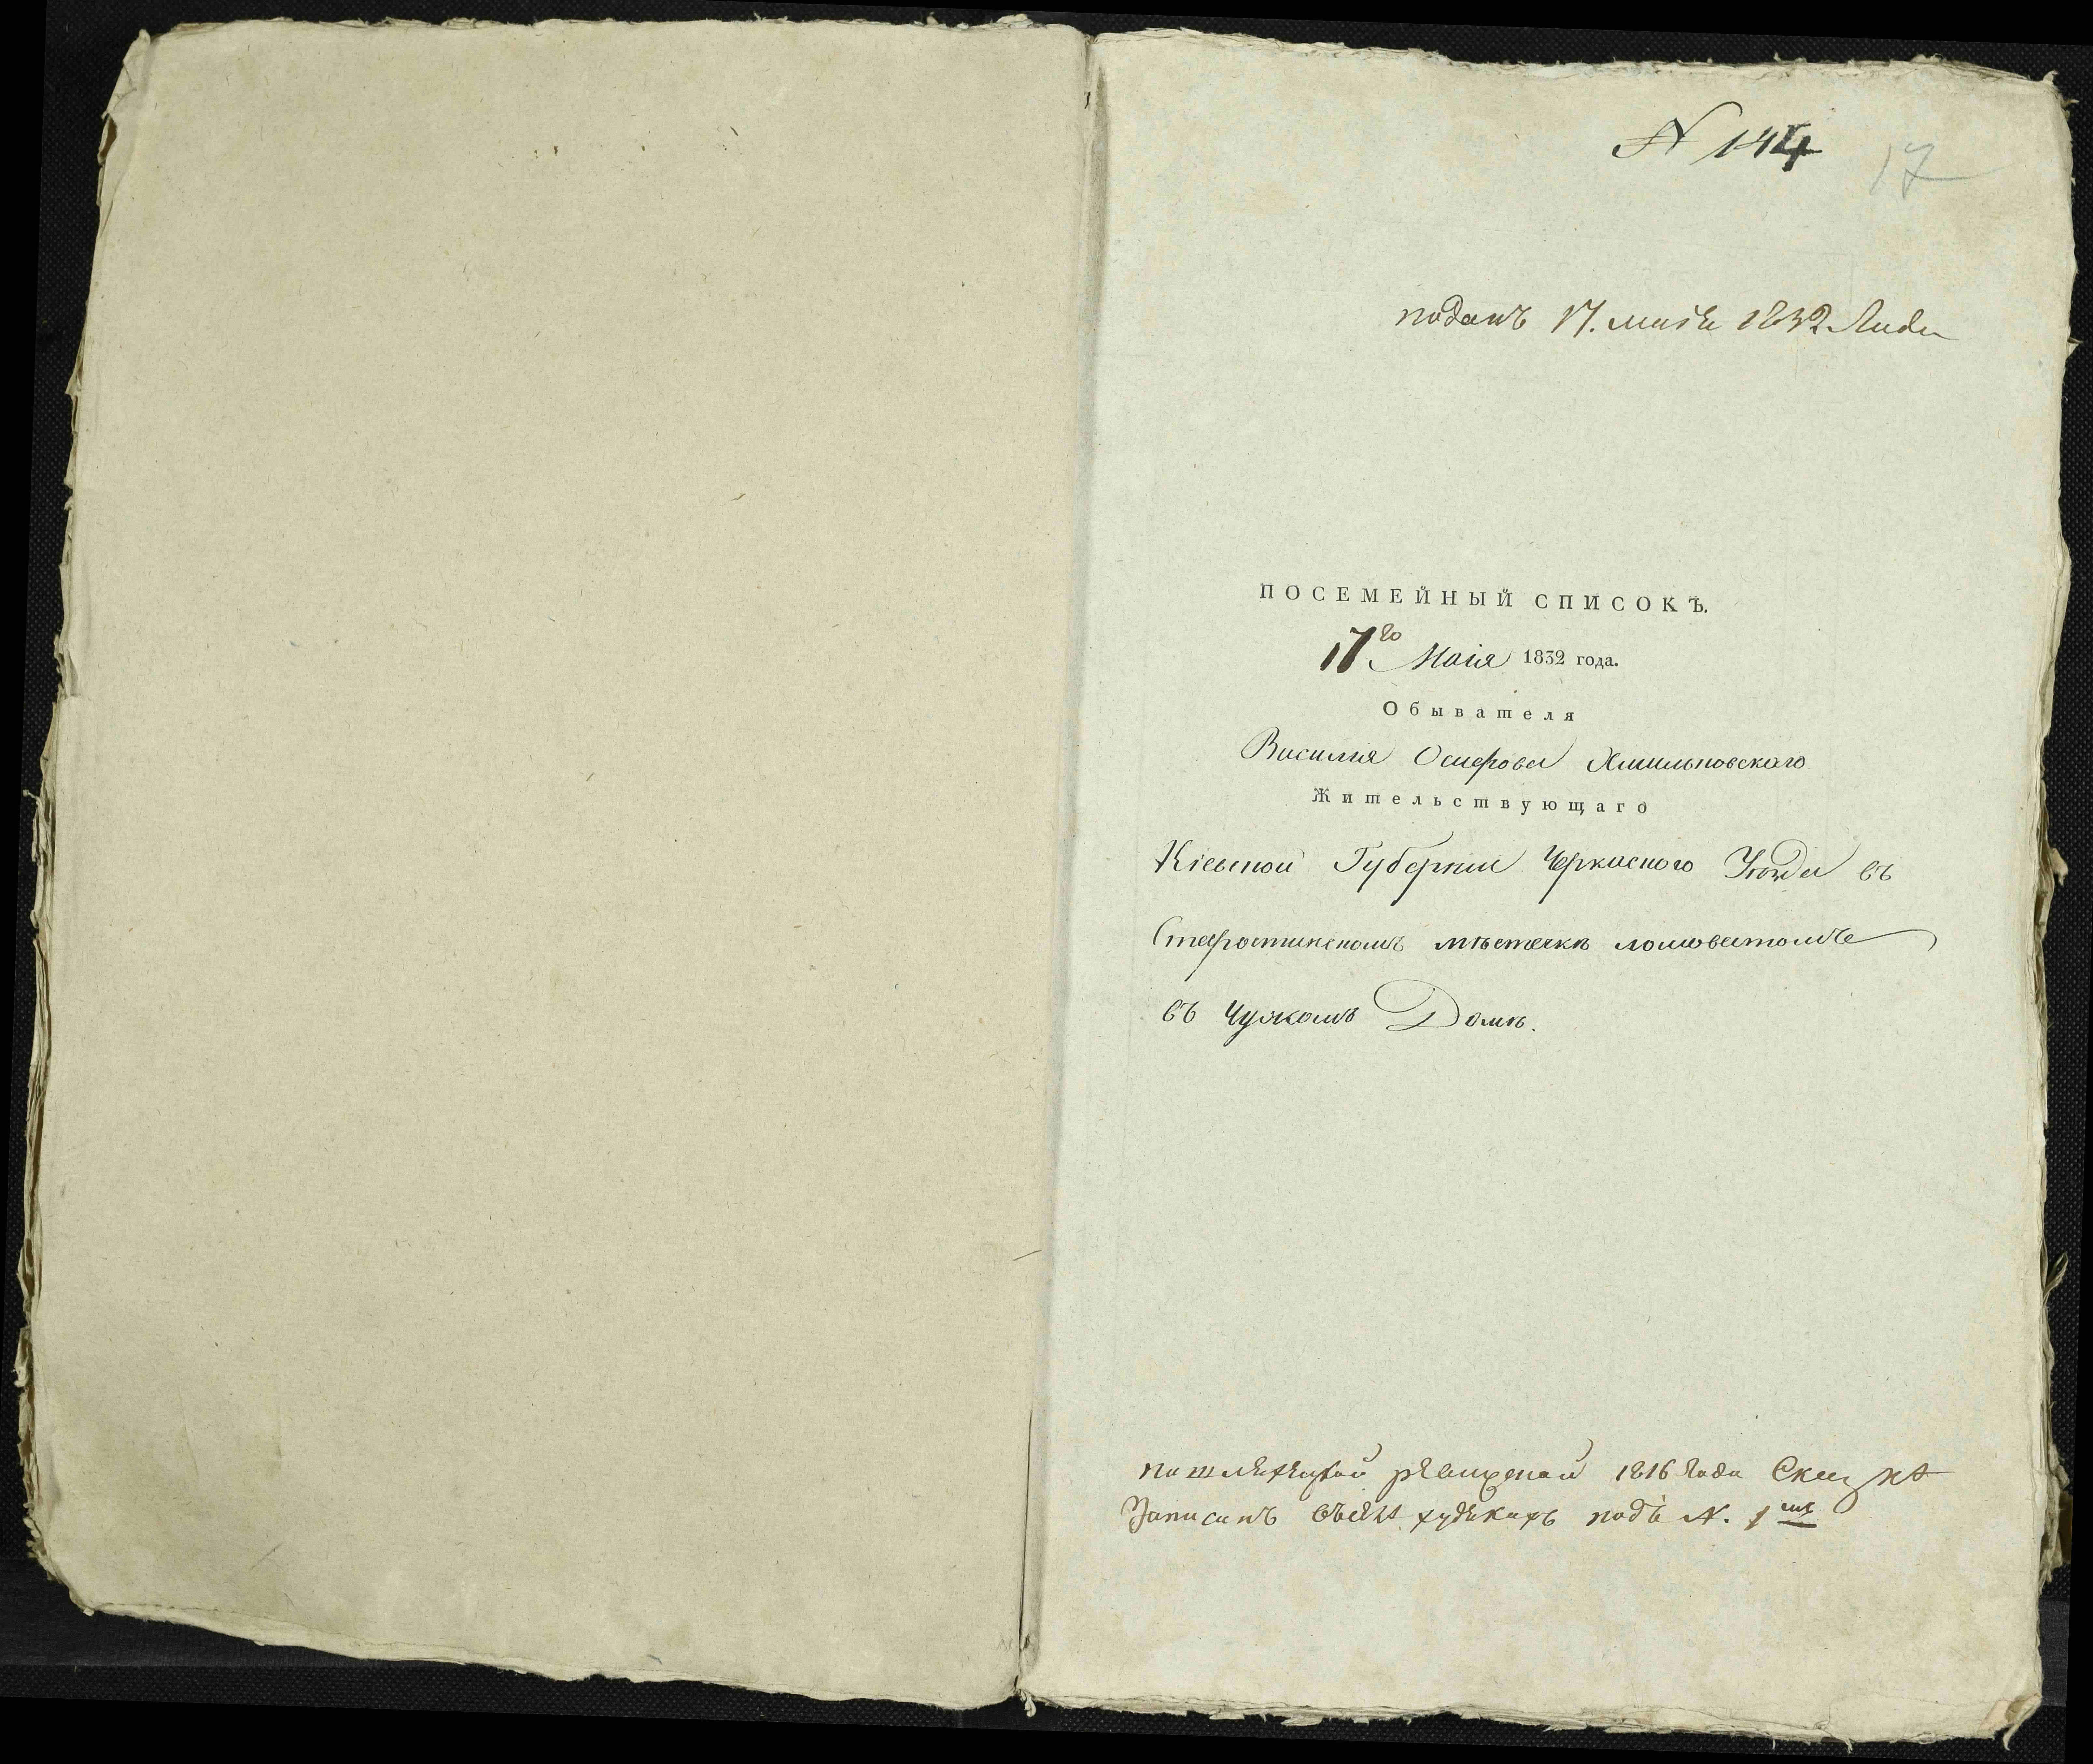 N 144
17
поданъ 17. маія 1832 Года
ПОСЕМЕЙНЫЙ СПИСОКЪ.
17го Маія 1832 года.
Обывателя
Василія Осиерова Хмильновского
Жительствующаго
Кіевской Губерніи Черкаского Уѣзда въ
Старостинскомъ мѣстечкѣ ломоватомъ
въ Чужомъ Домѣ.
по шляхецкой ревизской 1816 Года Скаскѣ
Записанъ въселѣ худякахъ подъ N. 1мъ